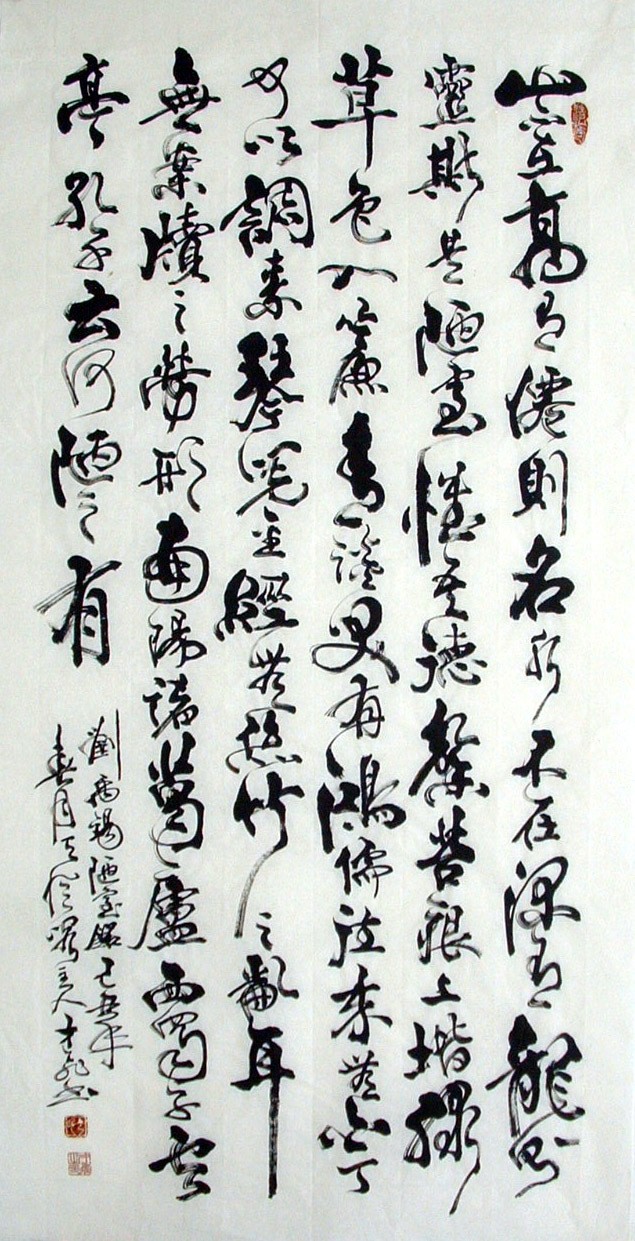 山不在高有僊則名水不在深有龍則
靈斯是陋室惟吾德馨苔痕上堦緑
草色入簾青談笑有鴻儒往來無白丁
可以調素琴閱金經無絲竹之亂耳
無案牘之勞形南陽諸葛廬西蜀子雲
亭孔子云何陋之有
劉禹錫陋室銘己丑年
春月主人